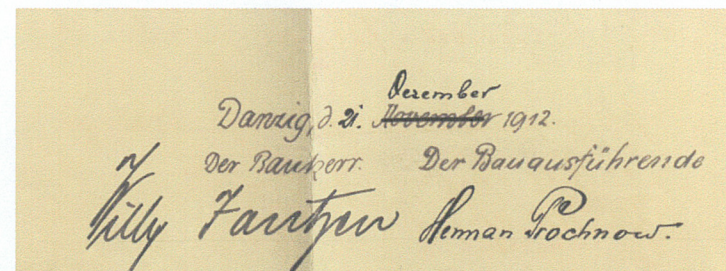 Dezember
Danzig, d. 21. November 1912.
Der Bauherr. Der Bauausführende
Willy Jantzen Herman Prochnow.